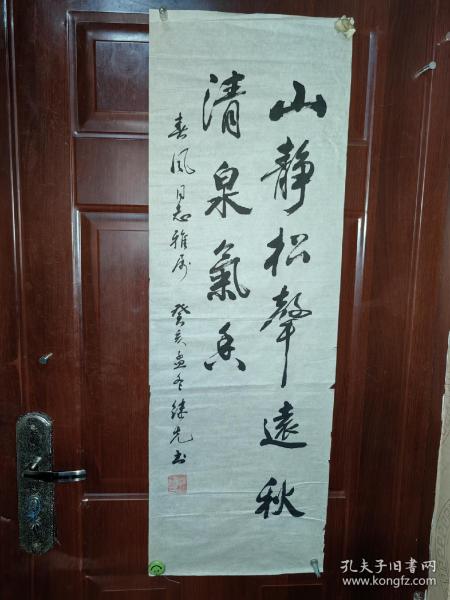 山静松聲遠秋
清泉氣香
春風同志雅属 癸亥孟冬继先书
孔夫子旧书网
www.kongfz.com